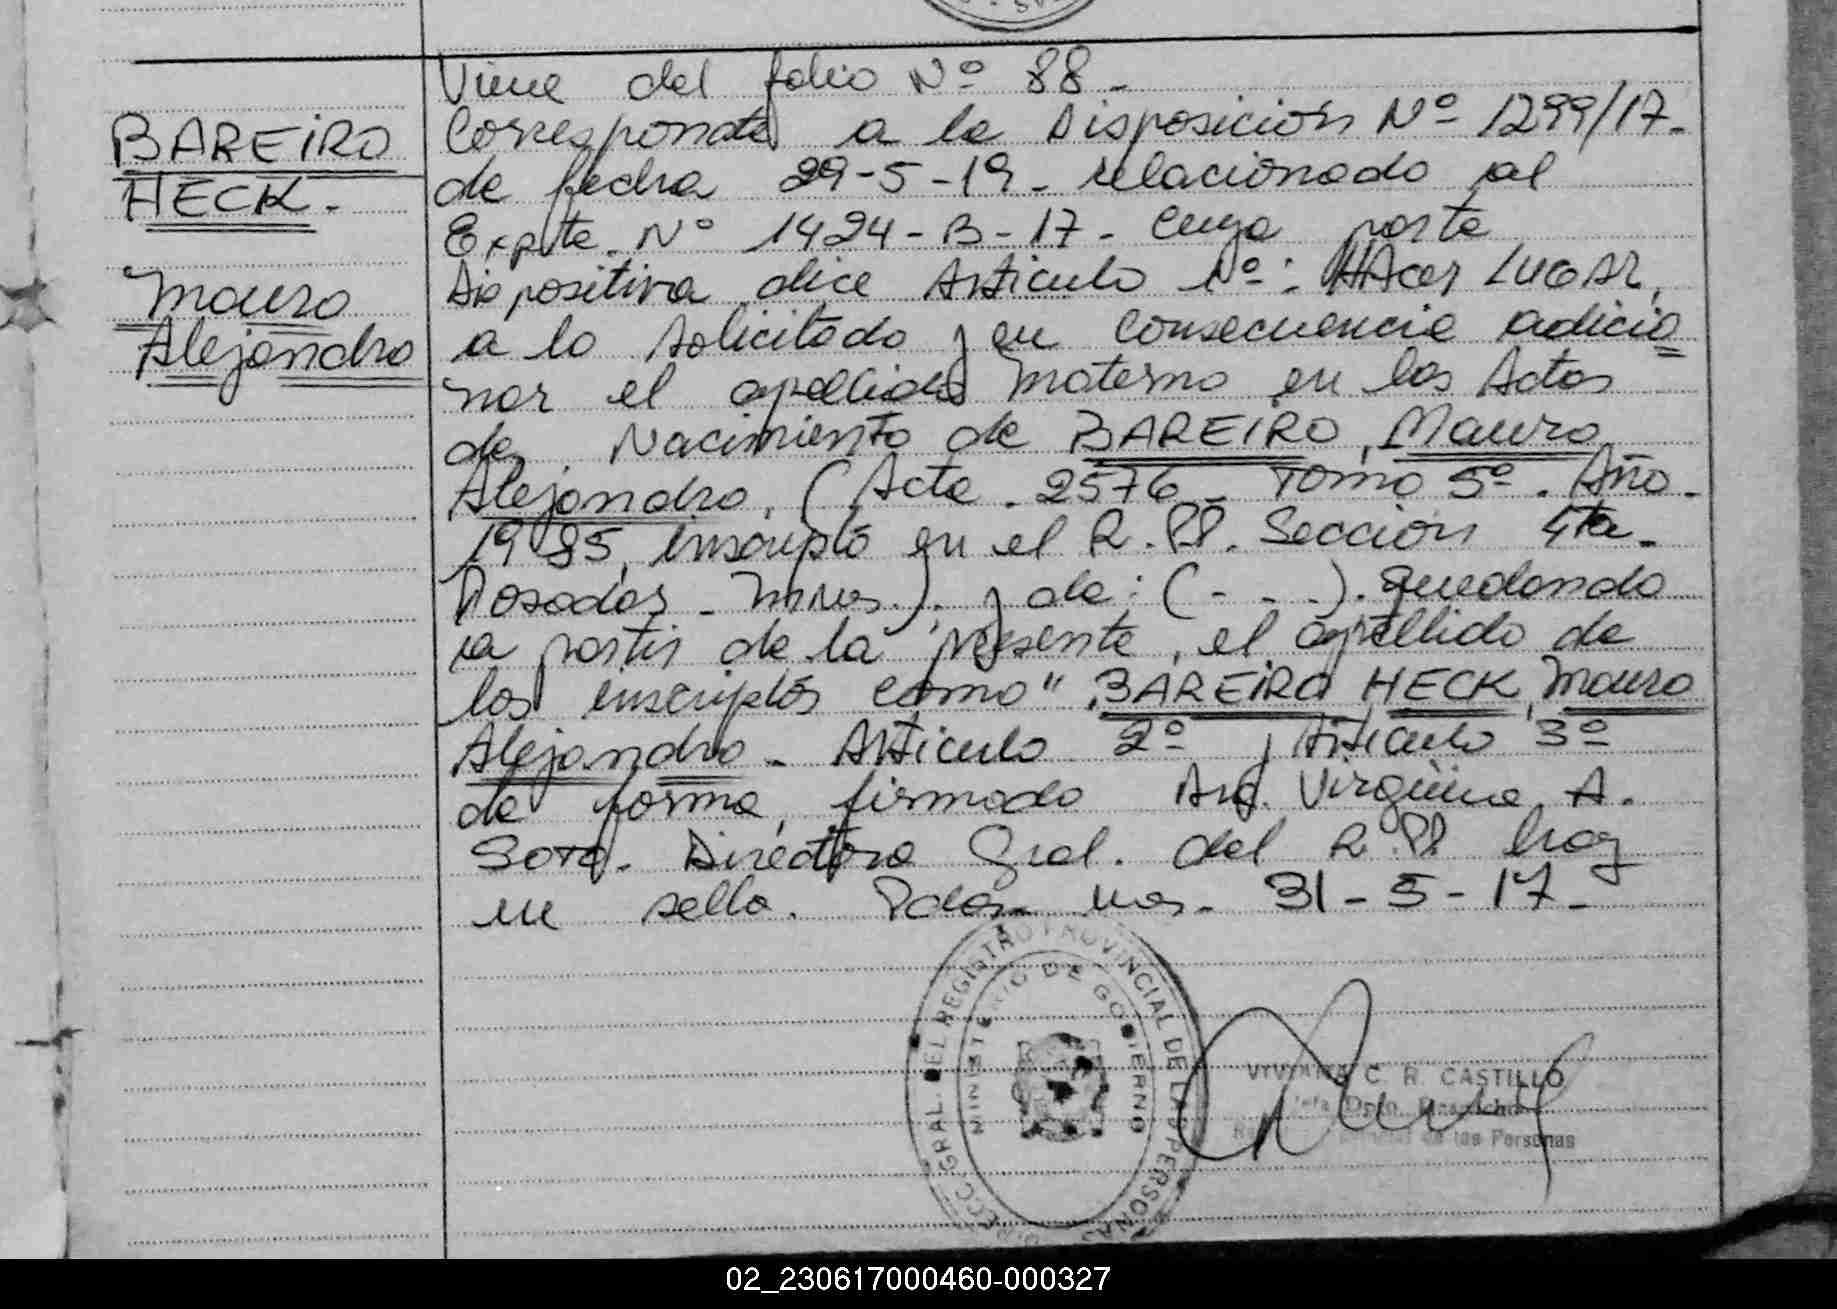 BAREIRO
HECK.
Mauro
Alejandro
Viene del folio Nº 88 -
Corresponde a la Disposición Nº 1299/17-
de fecha 29-5-19- relacionado al
Expte. Nº 1424-B-17- Cuya parte
Dispositiva dice Artículo 1º: HAcer LUGAR,
a lo solicitado y en consecuencia adicio
nar el apellido materno en las Actas
de Nacimiento de BAREIRO, Mauro
Alejandro, (Acta 2576 - Tomo 5º. Año -
1985, inscripto en el R.PP. Sección 4ta-
Posadas - Mnes.). y de: (- - -). quedando
a partir de la presente, el apellido de
los inscriptos como "BAREIRO HECK, Mauro
Alejandro - Artículo 2º y Artículo 3º
de forma, firmado Virginia A.
Soto. Directora Gral. del R.PP hay
un sello. Pdas- Mnes- 31-5-17-
DIRECC. GRAL. DEL REGISTRO PROVINCIAL DE LAS PERSONAS
MINISTERIO DE GOBIERNO
VIVIANA C. R. CASTILLO
Jefa Dpto.
de las Personas
02_230617000460-000327